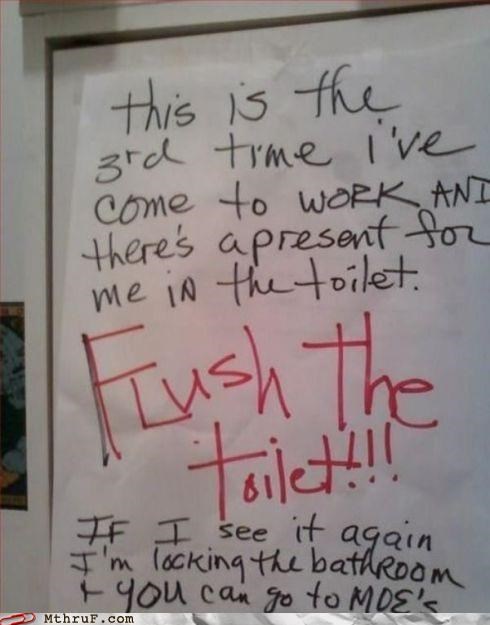 this is the
3rd time i've
come to WORK AND
there's a present for
me iN the toilet.
Flush the
toilet!!!
IF I see it again
I'm locking the bathRoom
+ YOU can go to MOE's
MthruF.com